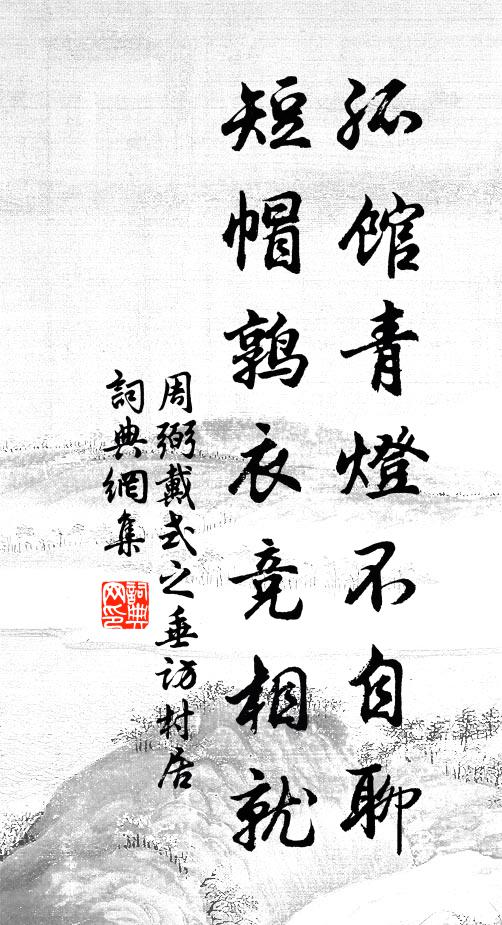 孤館青燈不自聊
短帽鶉衣竞相就
周弼戴式之垂访村居
詞典網集
詞典网印